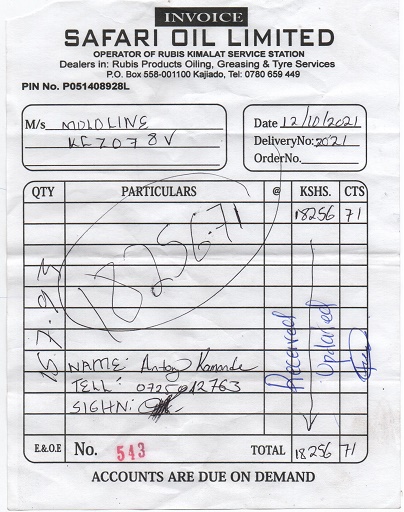 INVOICE
SAFARI OIL LIMITED
OPERATOR OF RUBIS KIMALAT SERVICE STATION
Dealers in: Rubis Products Oiling, Greasing & Tyre Services
P.O. Box 558-001100 Kajiado, Tel: 0780 659 449
PIN No. P051408928L
M/s MOLDLINE
Date 12/10/2021
DeliveryNo: 2021
OrderNo.
QTY PARTICULARS @ KSHS. CTS
18256 71
18256.71
NAME: Antony
TELL:
SIGHN:
Received
Updated
E.&O.E No. 543 TOTAL 18256 71
ACCOUNTS ARE DUE ON DEMAND